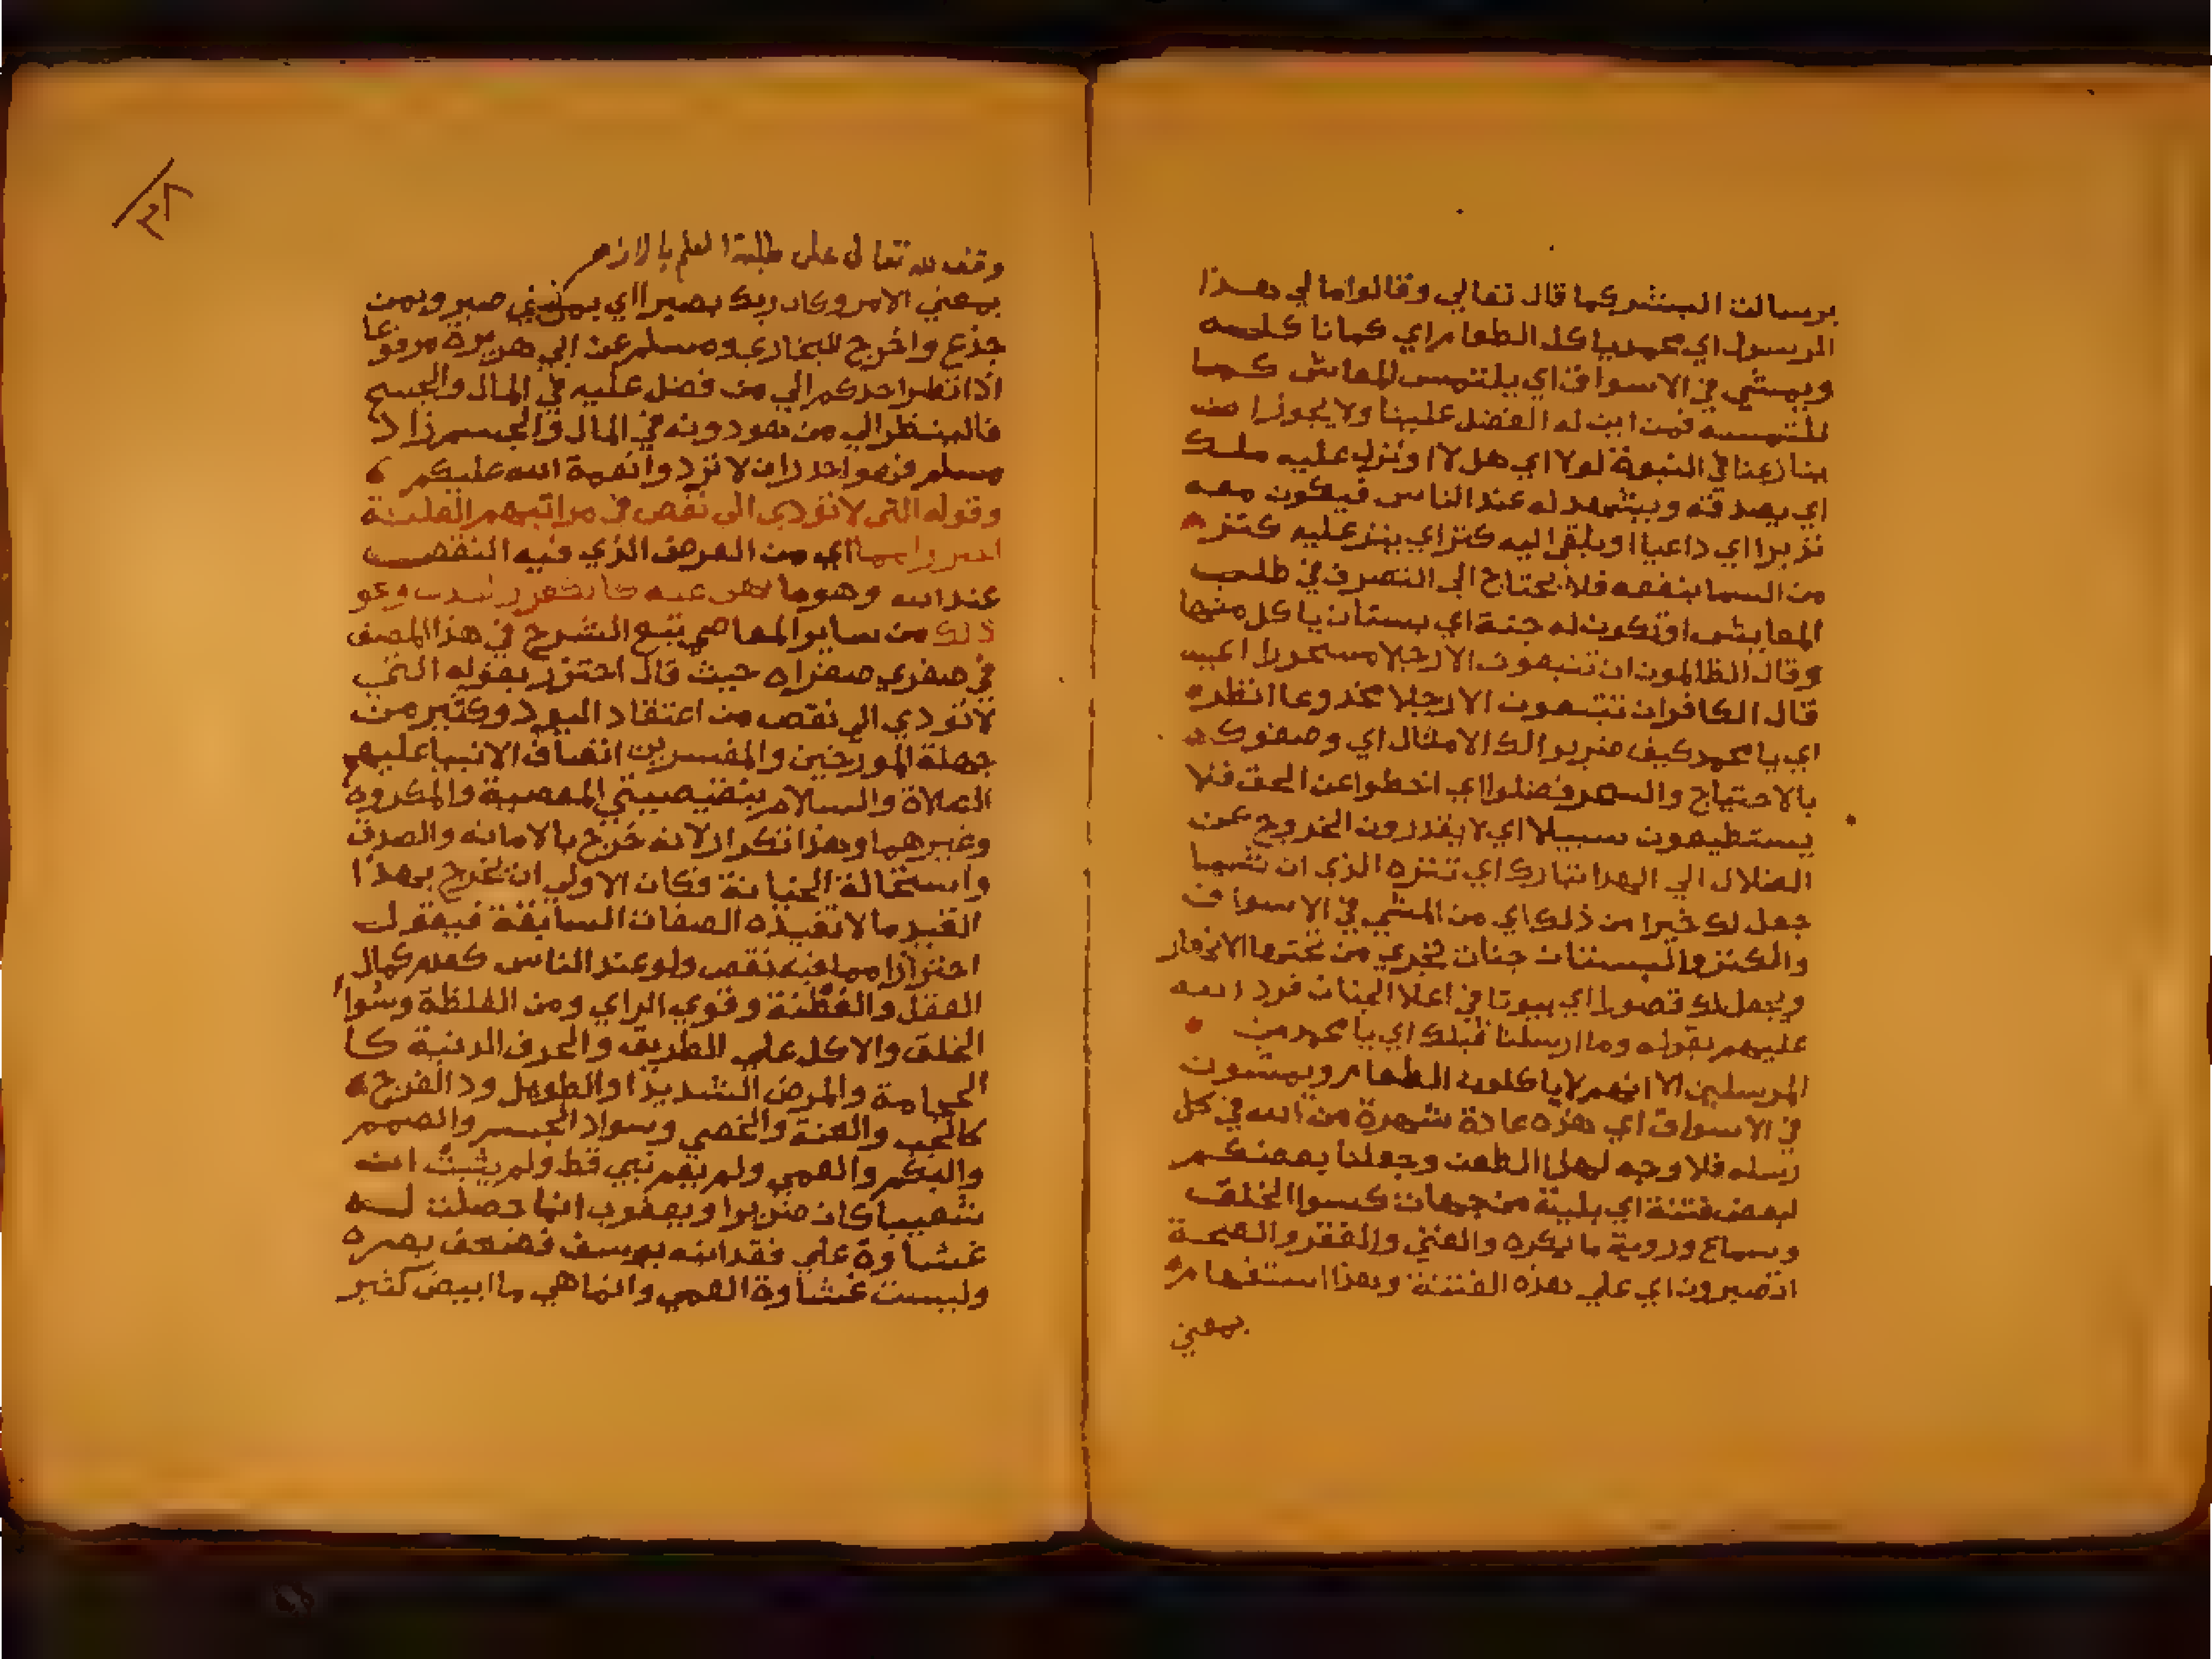 برسالت البشر كما قال تعالي وقالوا مالي هذا
الرسول اي محمد ياكل الطعام اي كمانا كله
ويمشي في الاسواق اي يلتمس المعاش كما
نلتمسه فمن اين له الفضل علينا ولا يجوز ان
ينازعنا في النبوة لولا اي هل لا انزل عليه ملك
اي يصدقه ويشهد له عند الناس فيكون معه
نذيرا اي داعيا او يلقي اليه كنز اي ينزعليه كنز
من السما ينفعه فلا يحتاج الي التصرف في طلب
المعايش او تكون له جنة اي بستان ياكل منها
وقال الظالمون ان تتبعون الا رجلا مسحورا اي
قال الكافر ان تتبعون الا رجلا مخدوعا انظر
اي يا محمد كيف ضربوا لك الامثال اي وصفوك
بالاحتياج والسحر فضلوا اي اخطوا عن الحق فلا
يستطيعون سبيلا اي لا يقدرون الخروج عن
الضلال الي الهدا تبارك اي تنزه الذي ان شا
جعل لك خيرا من ذلك اي من المشي في الاسواق
والكنز والبستان جنات تجري من تحتها الانهار
ويجعل لك قصورا اي بيوتا في اعلا الجنات فرد الله
عليهم بقوله وما ارسلنا قبلك اي يا محمد من
المرسلين الا انهم لاياكلون الطعام ويمشون
في الاسواق اي هذه عادة شهرة من الله في كل
رسله فلا وجه لهذا الطعن وجعلنا بعضكم
لبعض فتنة اي بلية من جهات كسوا الخلق
وسماع وروية ما يكره والغني والفقر والصحة
اتصبرون اي علي هذه الفتنة وهذا استفهام
بمعني
وقف لله تعالي علي طلبة العلم بالازهر
بمعني الامر وكان ربك بصيرا اي بمن صبر وبمن
جذع واخرج البخاري ومسلم عن ابي هريرة مرفوعا
اذا نظر احدكم الي من فضل عليه في المال والجسم
فالينظر الي من هو دونه في المال والجسم زاد
مسلم فهو احدر ان لا تزدوا نعمة الله عليكم
وقوله التي لا تودي الي نقص في مراتبهم العلية
اي من العرض الذي فيه النقص
عند الله وهو ما نهي عنه
ذلك من ساير المعاصي تبع الشرح في هذا المصنف
في صغري صغراه حيث قال احترز بقوله التي
لا تودي الي نقص من اعتقاد اليهود وكثير من
جهلة المورخين والمفسرين اتصاف الانبيا عليهم
الصلاة والسلام بنقيصيتي المعصية والمكروه
وغيرهما وهذا تكرار لانه خرج بالامانه والصدق
واستحالة الخيانة فكان الاولي ان يخرج بهذا
القيد ما لا تفيده الصفات السابقة فيقول
احترازا مما فيه نقص ولو عند الناس كعدم كمال
العقل والفطنة وقوي الراي ومن الغلظة وسوا
الخلق والاكل علي الطريق والحرف الدنية كا
الحجامة والمرض الشديد او الطويل ودا الفرج
كالجب والعنة والخصي وسواد الجسم والصمم
والبكم والعمي ولم يعم نبي قط ولم يثبت ان
شعيبا كان ضريرا ويعقوب انما حصلت له
غشاوة علي فقد ابنه يوسف فضعف بصره
وليست غشاوة العمي وانما هي ما ابيض كثير